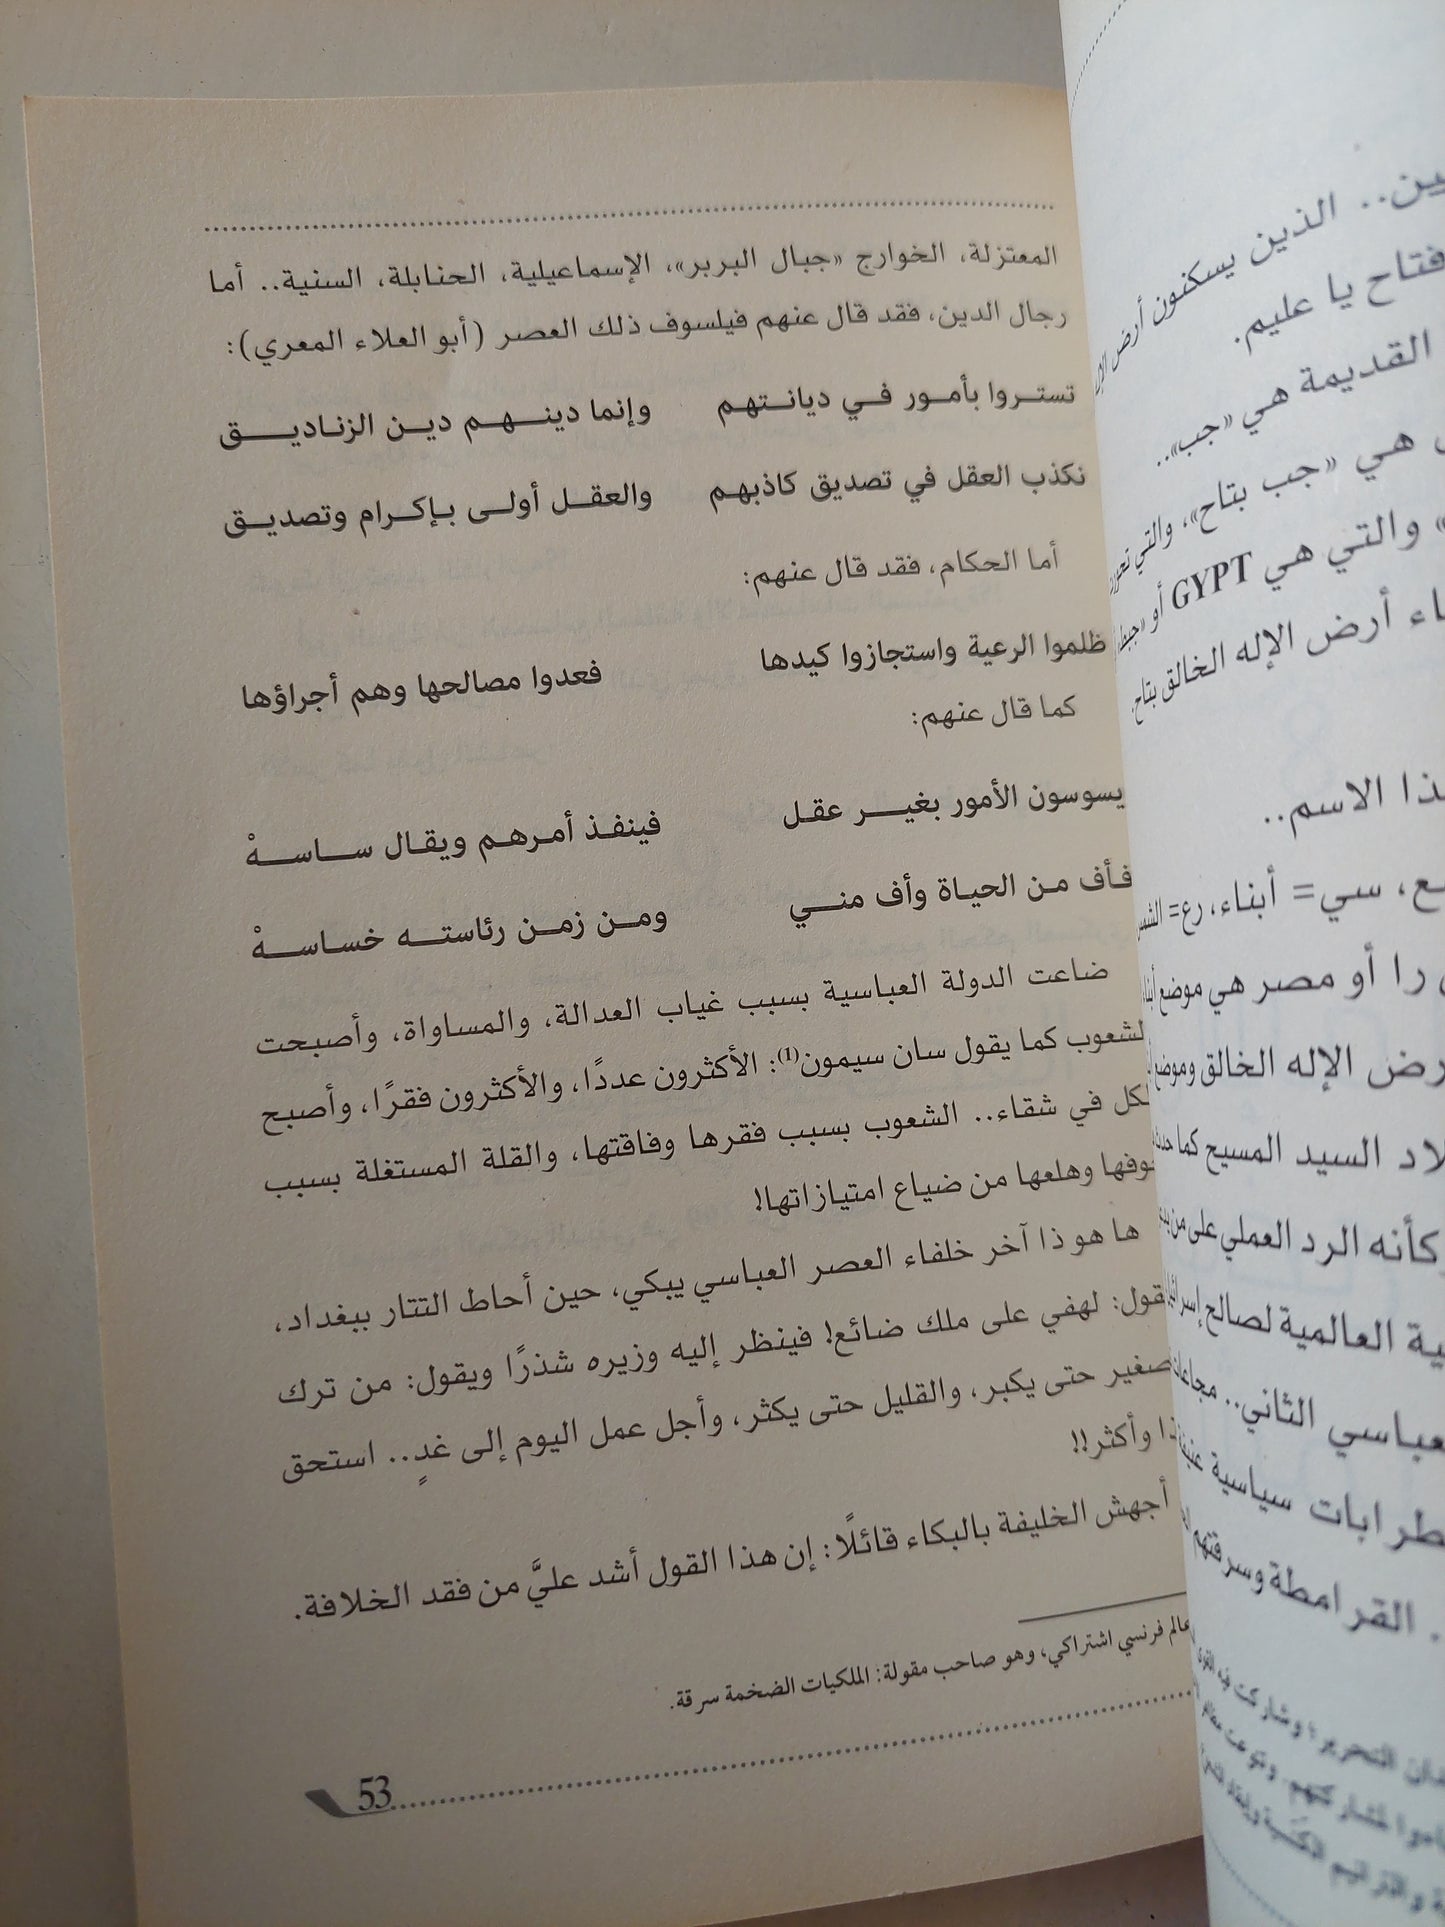 المعتزلة، الخوارج «جبال البربر»، الإسماعيلية، الحنابلة، السنية.. أما
رجال الدين، فقد قال عنهم فيلسوف ذلك العصر (أبو العلاء المعري):
تستروا بأمور في ديانتهم وإنما دينهم دين الزناديق
نكذب العقل في تصديق كاذبهم والعقل أولى بإكرام وتصديق
أما الحكام، فقد قال عنهم:
ظلموا الرعية واستجازوا كيدها فعدوا مصالحها وهم أجراؤها
كما قال عنهم:
يسوسون الأمور بغير عقل فينفذ أمرهم ويقال ساسهْ
فأف من الحياة وأف مني ومن زمن رئاسته خساسهْ
ضاعت الدولة العباسية بسبب غياب العدالة، والمساواة، وأصبحت
لشعوب كما يقول سان سيمون(1): الأكثرون عددًا، والأكثرون فقرًا، وأصبح
لكل في شقاء.. الشعوب بسبب فقرها وفاقتها، والقلة المستغلة بسبب
وفها وهلعها من ضياع امتيازاتها!
ها هو ذا آخر خلفاء العصر العباسي يبكي، حين أحاط التتار ببغداد،
قول: لهفي على ملك ضائع! فينظر إليه وزيره شذرًا ويقول: من ترك
صغير حتى يكبر، والقليل حتى يكثر، وأجل عمل اليوم إلى غدٍ.. استحق
ذا وأكثر!!
أجهش الخليفة بالبكاء قائلًا: إن هذا القول أشد عليَّ من فقد الخلافة.
عالم فرنسي اشتراكي، وهو صاحب مقولة: الملكيات الضخمة سرقة.
53
ين.. الذين يسكنون أرض
فتاح يا عليم.
القديمة هي «جب»..
هي «جب بتاح»، والتي
» والتي هي GYPT أو «جبط
اء أرض الإله الخالق بتاح.
ذا الاسم..
ع، سي= أبناء، رع= الشمس
را أو مصر هي موضع أبناء
رض الإله الخالق وموضع
لاد السيد المسيح كما حدث
كأنه الرد العملي على من
ية العالمية لصالح إسرائيل
عباسي الثاني.. مجاعات
طرابات سياسية عنيفة
. القرامطة وسرقتهم
دان التحرير؛ وشاركت فيه القوى